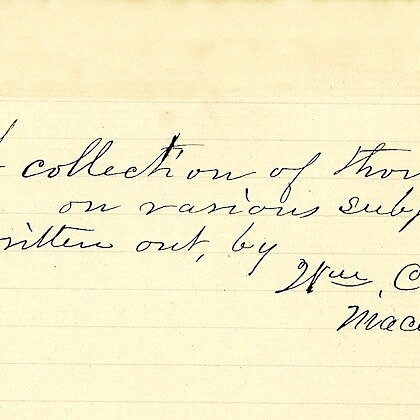 collection of thou
on various subj
written out, by
Wm. C
Mac